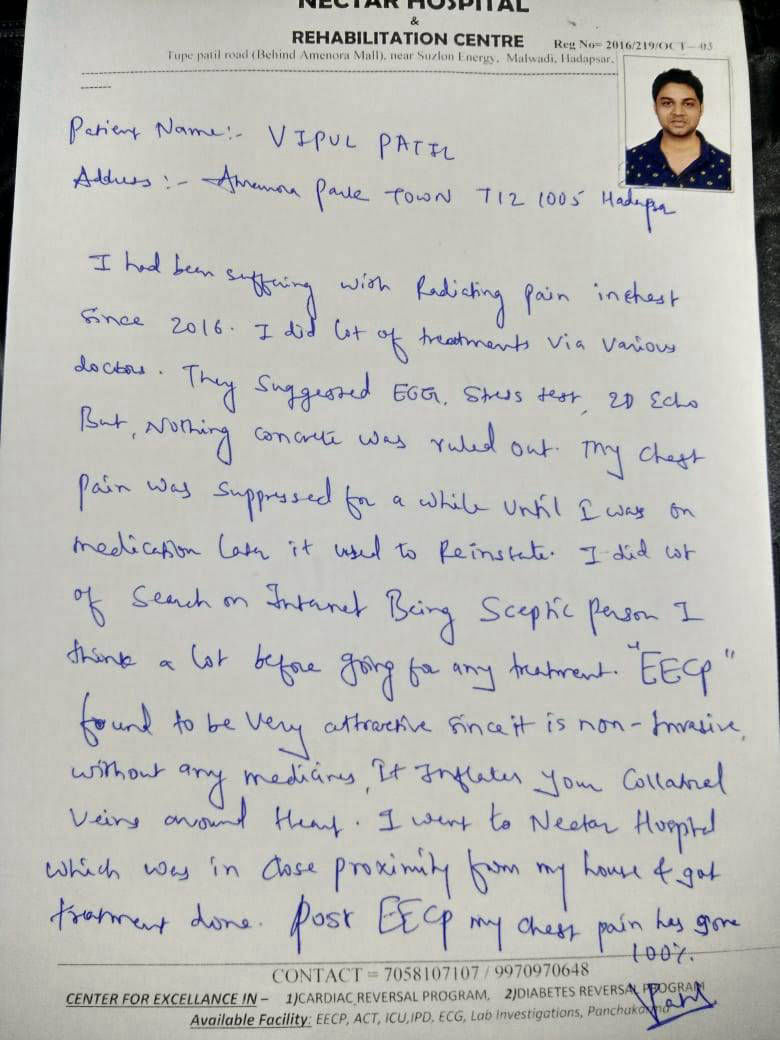 NECTAR HOSPITAL
&
REHABILITATION CENTRE
Reg No= 2016/219/OCT-03
Tupe patil road (Behind Amenora Mall), near Suzlon Energy, Malwadi, Hadapsar.
Patient Name:- VIPUL PATIL
Address:- Amenora Park TOWN T12 1005 Hadapsar
I had been suffering with Radiating pain in chest
Since 2016. I did lot of treatments via various
doctors. They suggested ECG, Stress test, 2D Echo
But, Nothing concrete was ruled out. My chest
pain was suppressed for a while until I was on
medication later it used to Reinstate. I did lot
of Search on Internet Being Sceptic person I
think a lot before going for any treatment. "EECP"
found to be very attractive since it is non-Invasive,
without any medicines, It Inflates your Collateral
Veins around Heart. I went to Nectar Hospital
which was in close proximity from my house & got
treatment done. Post EECP my chest pain has gone
100%.
CONTACT = 7058107107 / 9970970648
CENTER FOR EXCELLENCE IN – 1)CARDIAC REVERSAL PROGRAM, 2)DIABETES REVERSAL PROGRAM
Available Facility: EECP, ACT, ICU,IPD, ECG, Lab Investigations, Panchukarma